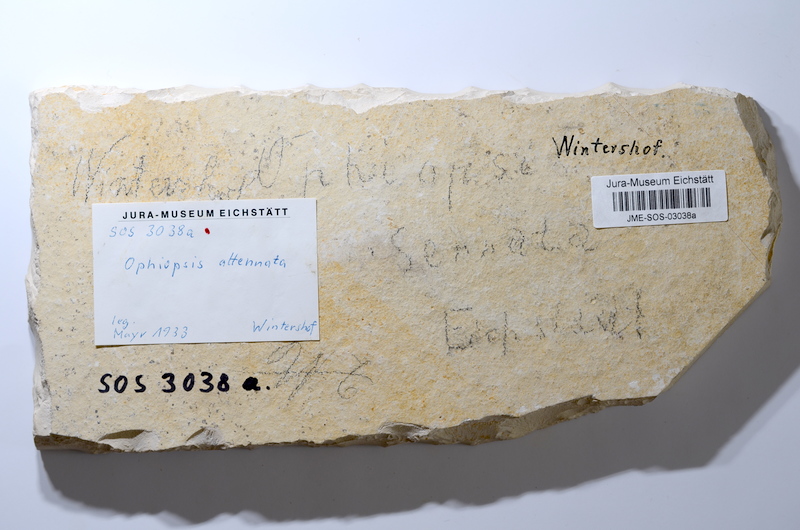 Wintershof.
Wintershof Ophiopsis
Jura-Museum Eichstätt
JME-SOS-03038a
JURA-MUSEUM EICHSTÄTT
SOS 3038a
Ophiopsis attennata
leg.
Mayr 1933 Wintershof
Serrata
Eichstätt
SOS 3038 a.